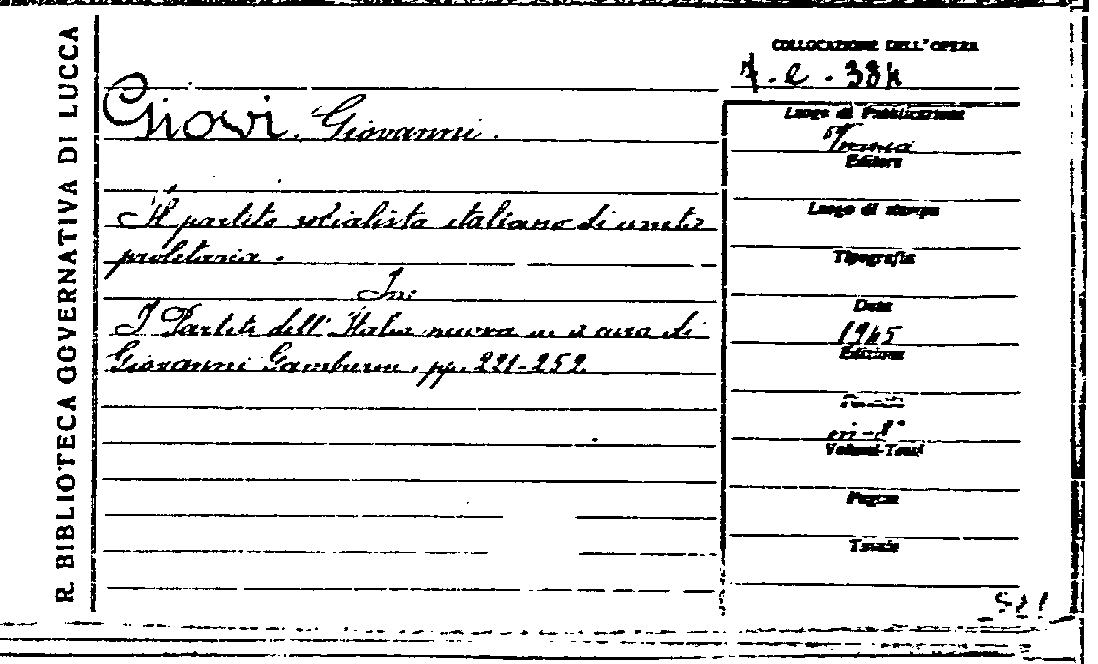 R. BIBLIOTECA GOVERNATIVA DI LUCCA
COLLOCAZIONE DELL'OPERA
Giovi. Giovanni.
Luogo di Pubblicazione
Editore
Il partito socialista italiano di unità
proletaria.
In:
I Partiti dell'Italia nuova a cura di
Giovanni Gamburin, pp. 221-252.
Luogo di stampa
Tipografia
Data
1945
Edizione
Formato
Volumi-Tomi
Pagine
Tavole
521